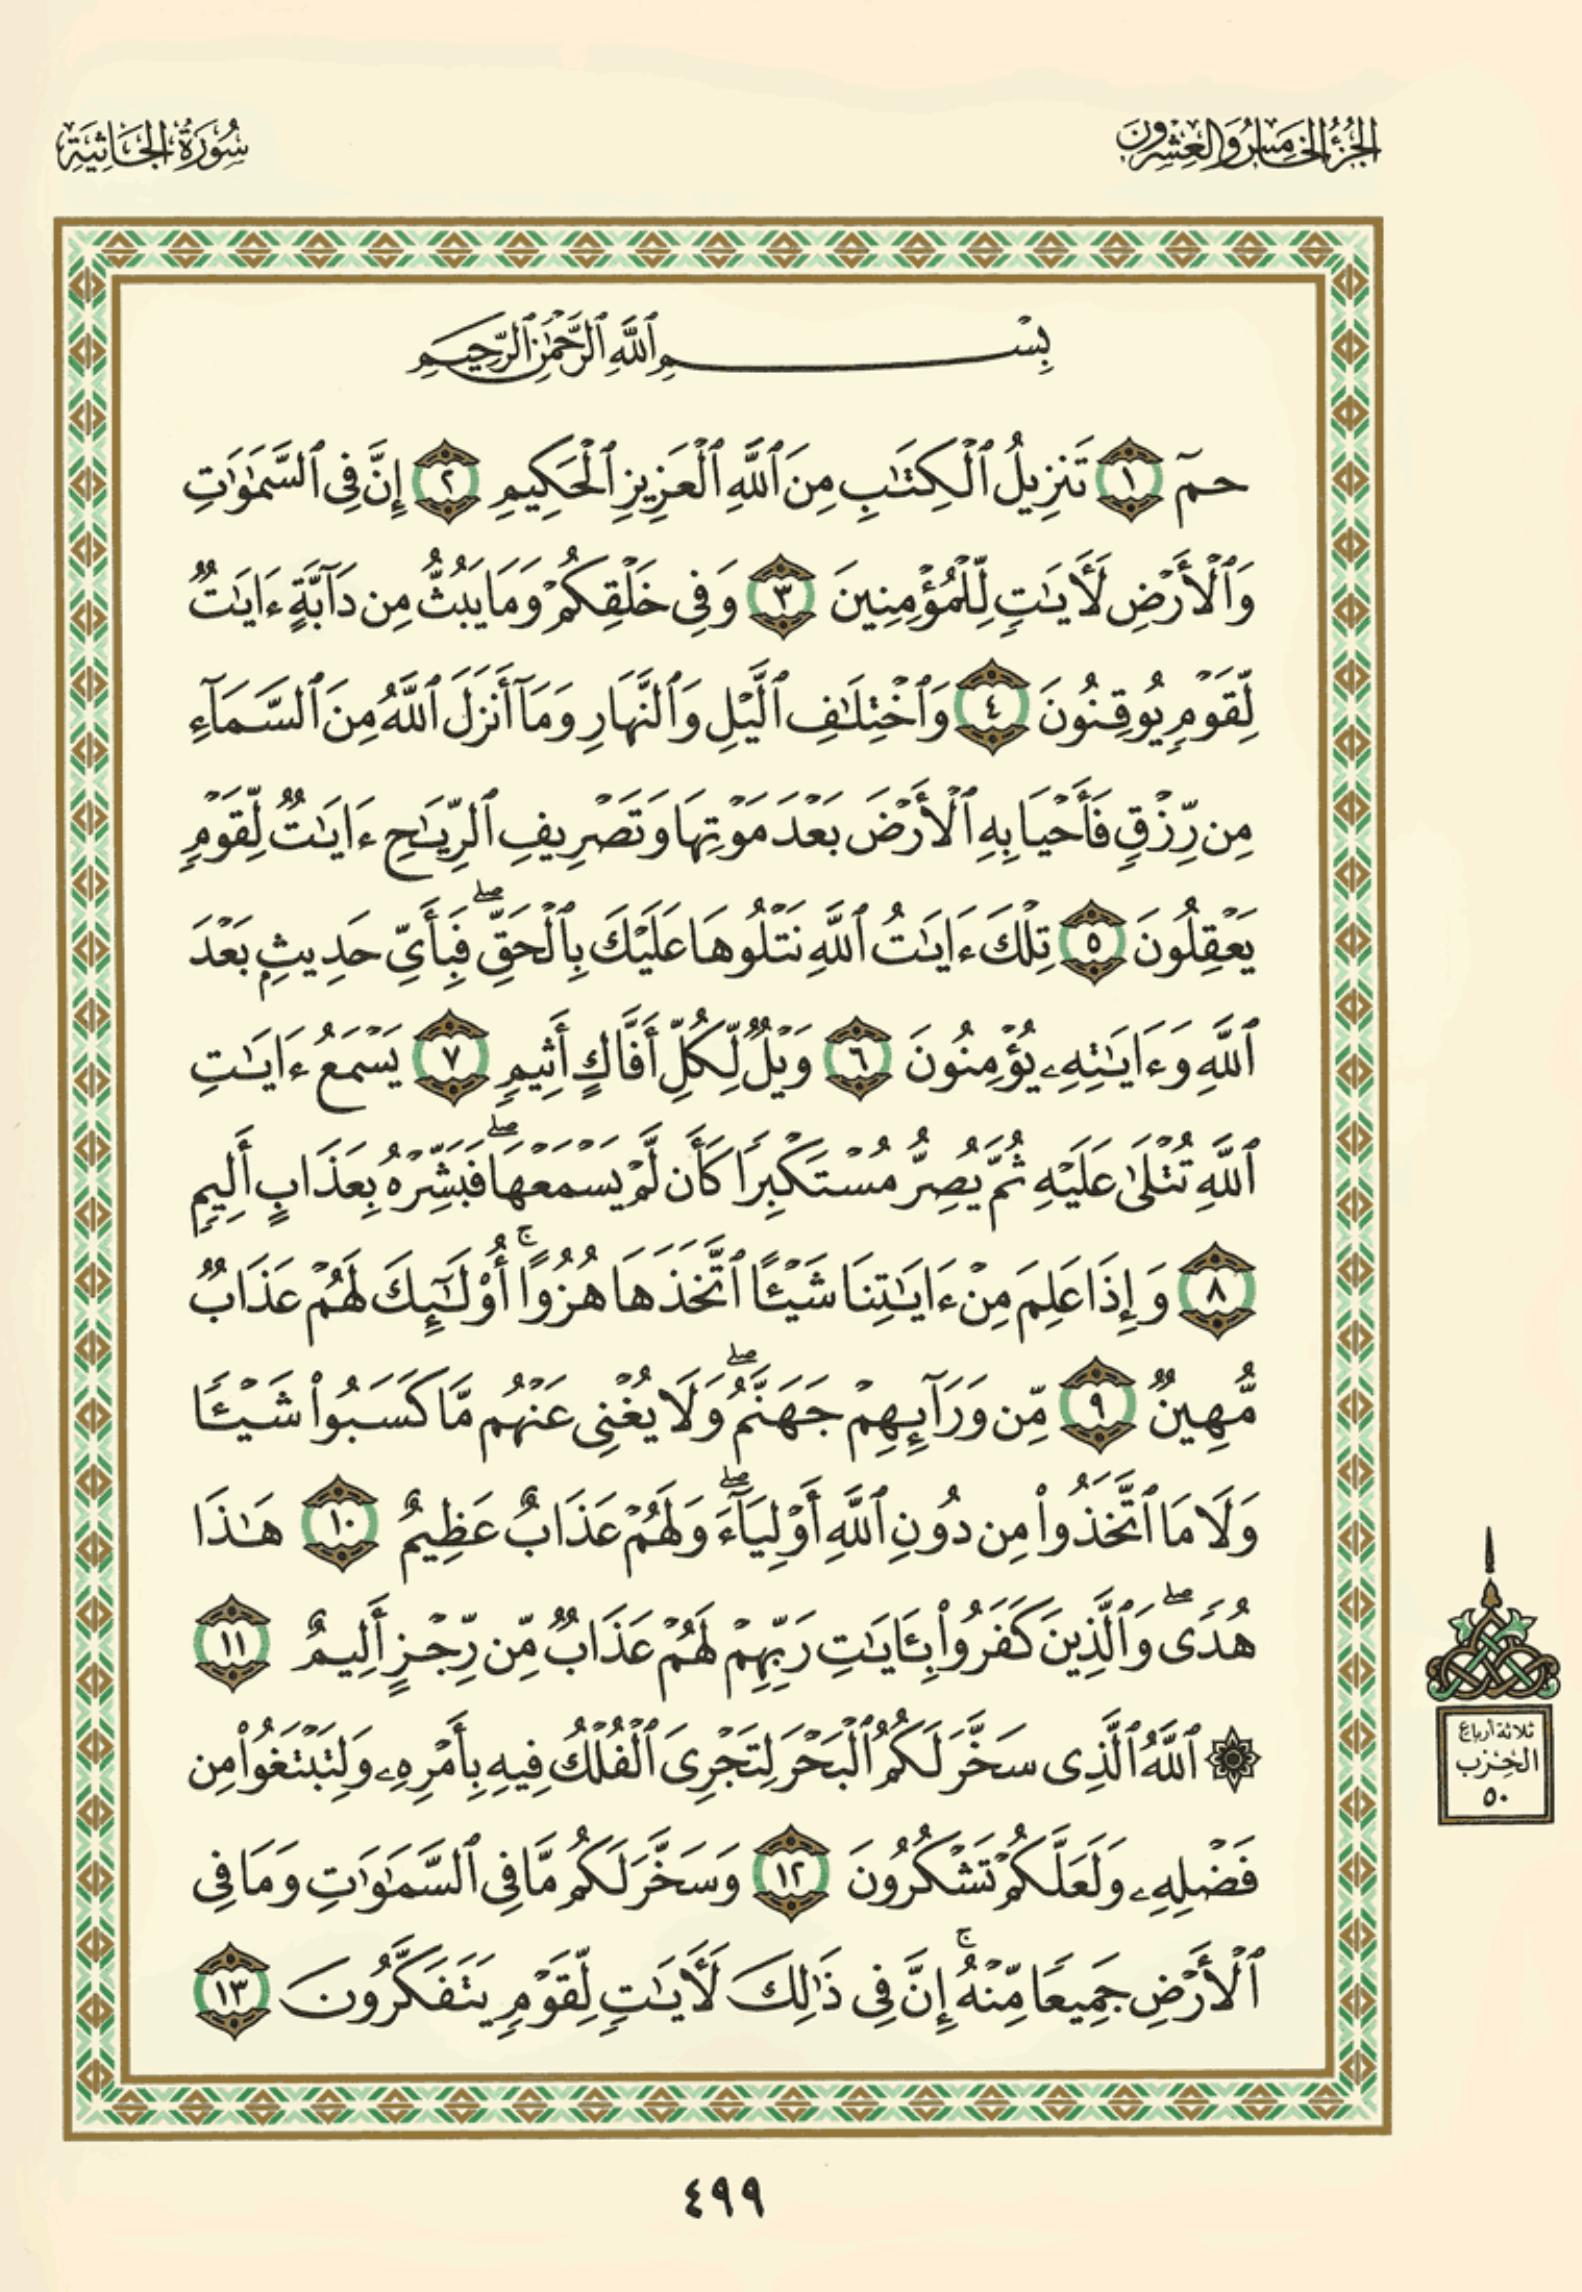 سُورَةُ الجَاثِيَةِ
الجُزْءُ الخَامِسُ وَالعِشْرُونَ
بِسْمِ ٱللَّهِ ٱلرَّحْمَٰنِ ٱلرَّحِيمِ
حمٓ ١ تَنزِيلُ ٱلْكِتَٰبِ مِنَ ٱللَّهِ ٱلْعَزِيزِ ٱلْحَكِيمِ ٢ إِنَّ فِى ٱلسَّمَٰوَٰتِ
وَٱلْأَرْضِ لَأٓيَٰتٍ لِّلْمُؤْمِنِينَ ٣ وَفِى خَلْقِكُمْ وَمَا يَبُثُّ مِن دَآبَّةٍ ءَايَٰتٌ
لِّقَوْمٍ يُوقِنُونَ ٤ وَٱخْتِلَٰفِ ٱلَّيْلِ وَٱلنَّهَارِ وَمَآ أَنزَلَ ٱللَّهُ مِنَ ٱلسَّمَآءِ
مِن رِّزْقٍ فَأَحْيَا بِهِ ٱلْأَرْضَ بَعْدَ مَوْتِهَا وَتَصْرِيفِ ٱلرِّيَٰحِ ءَايَٰتٌ لِّقَوْمٍ
يَعْقِلُونَ ٥ تِلْكَ ءَايَٰتُ ٱللَّهِ نَتْلُوهَا عَلَيْكَ بِٱلْحَقِّ ۖ فَبِأَىِّ حَدِيثٍۭ بَعْدَ
ٱللَّهِ وَءَايَٰتِهِۦ يُؤْمِنُونَ ٦ وَيْلٌ لِّكُلِّ أَفَّاكٍ أَثِيمٍ ٧ يَسْمَعُ ءَايَٰتِ
ٱللَّهِ تُتْلَىٰ عَلَيْهِ ثُمَّ يُصِرُّ مُسْتَكْبِرًا كَأَن لَّمْ يَسْمَعْهَا ۖ فَبَشِّرْهُ بِعَذَابٍ أَلِيمٍ
٨ وَإِذَا عَلِمَ مِنْ ءَايَٰتِنَا شَيْـًٔا ٱتَّخَذَهَا هُزُوًا ۚ أُو۟لَٰٓئِكَ لَهُمْ عَذَابٌ
مُّهِينٌ ٩ مِّن وَرَآئِهِمْ جَهَنَّمُ ۖ وَلَا يُغْنِى عَنْهُم مَّا كَسَبُوا۟ شَيْـًٔا
وَلَا مَا ٱتَّخَذُوا۟ مِن دُونِ ٱللَّهِ أَوْلِيَآءَ ۖ وَلَهُمْ عَذَابٌ عَظِيمٌ ١٠ هَٰذَا
هُدًى ۖ وَٱلَّذِينَ كَفَرُوا۟ بِـَٔايَٰتِ رَبِّهِمْ لَهُمْ عَذَابٌ مِّن رِّجْزٍ أَلِيمٌ ١١
۞ ٱللَّهُ ٱلَّذِى سَخَّرَ لَكُمُ ٱلْبَحْرَ لِتَجْرِىَ ٱلْفُلْكُ فِيهِ بِأَمْرِهِۦ وَلِتَبْتَغُوا۟ مِن
فَضْلِهِۦ وَلَعَلَّكُمْ تَشْكُرُونَ ١٢ وَسَخَّرَ لَكُم مَّا فِى ٱلسَّمَٰوَٰتِ وَمَا فِى
ٱلْأَرْضِ جَمِيعًا مِّنْهُ ۚ إِنَّ فِى ذَٰلِكَ لَأٓيَٰتٍ لِّقَوْمٍ يَتَفَكَّرُونَ ١٣
ثلاثة أرباع
الحزب
٥٠
٤٩٩